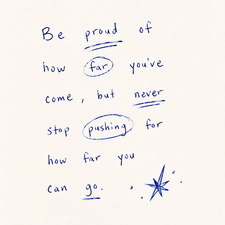 Be proud of
how far you've
come, but never
stop pushing for
how far you
can go.